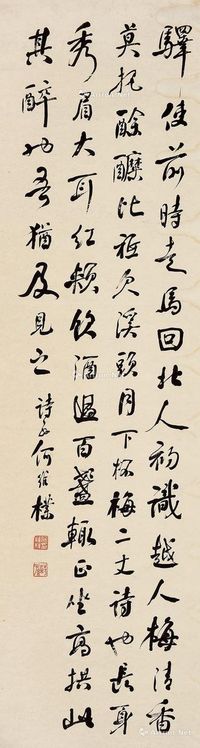 驛使前時走馬回北人初識越人梅清香
莫把酴醾比祇欠溪頭月下杯梅二丈詩也長身
秀眉大耳紅頰飲酒過百盞輒正坐高拱此
其醉也吾猶及見之 詩孫何維樸